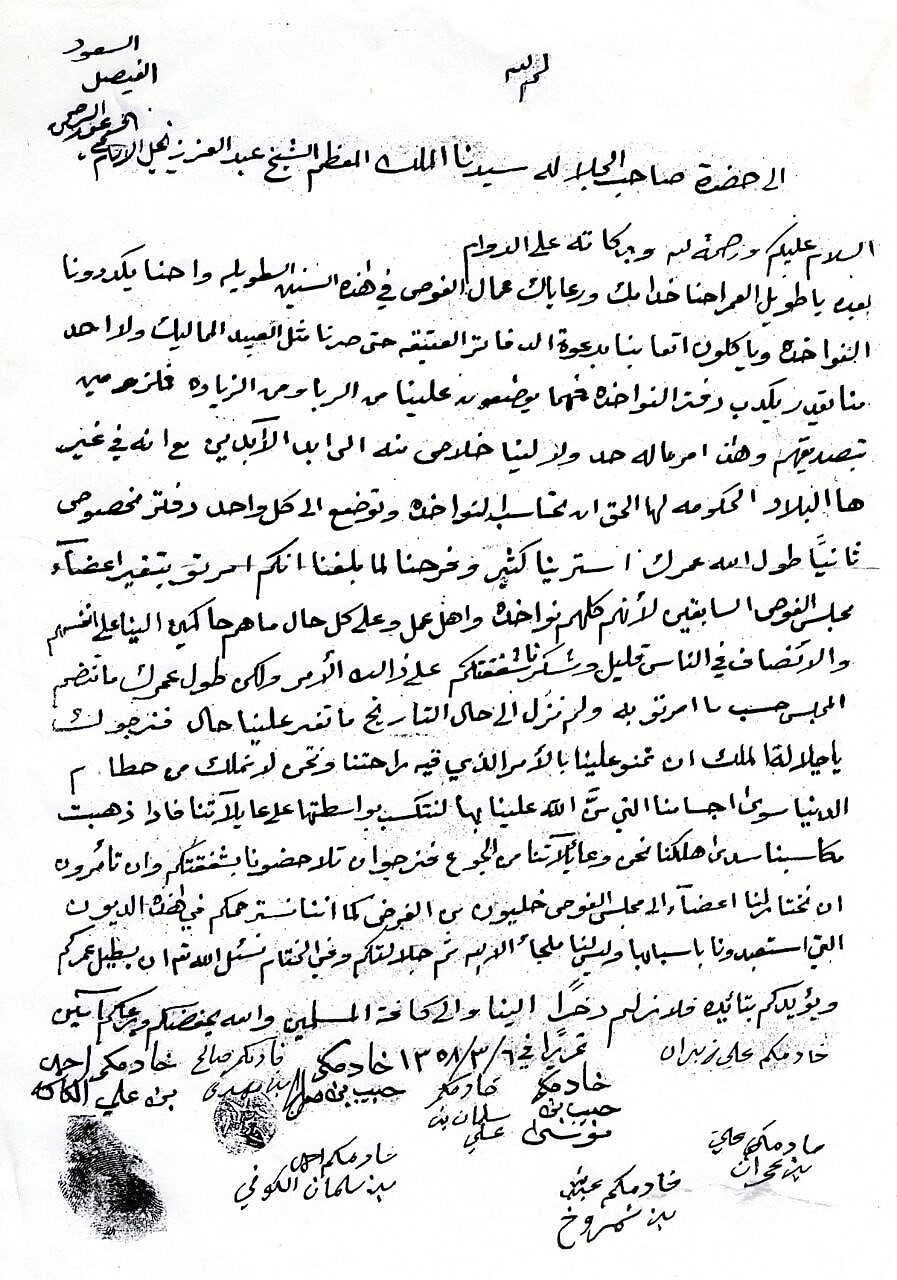 لم لله
الى حضرة صاحب الجلاله سيدنا الملك المعظم الشيخ عبد العزيز نجل الامام
عبد الرحمن
الفيصل
السعود
السلام عليكم ورحمة لله وبركاته على الدوام
بعده يا طويل العمر احنا خدامك ورعاياك عمال الغوص في هذه السنين الطويله واحنا يكددونا
النواخذه وياكلون اتعابنا بدعوة الدفاتر العتيقه حتى صرنا مثل العبيد المماليك ولا احد
منا يقدر يكذب دفتر النواخذه فمهما يوضعون علينا من الربا ومن الزياده فلزومين
بتصديقهم وهذا امر ماله حد ولا لنيا خلاص منه الى ابد الآبدين مع انه في غير
هالبلاد الحكومه لها الحق ان تحاسب النواخذه وتوضع الى كل واحد دفتر مخصوص
ثانياً طول الله عمرك استرينا كثير وفرحنا لما بلغنا انكم امرتو بتغير اعضآء
مجلس الغوص السابقين لأنهم كلهم نواخذه واهل عمل وعلى كل حال ما هم حاكمين الينا على انفسهم
والانصاف في الناس قليل وشكرنا شفقتكم على ذالك الأمر ولكن طول عمرك ما تنضم
المجلس حسب ما امرتو به ولم نزل الى حال التاريخ ما تغير علينا حال فنرجو لك
يا جلالة الملك ان تمنو علينا بالأمر الذي فيه راحتنا ونحن لا نملك من حطام
الدنيا سوى اجسامنا التي منَّ الله علينا بها لنتكسب بواسطتها على عايلآتنا فاذا ذهبت
مكاسبنا سدى اهلكنا نحن وعايلآتنا من الجوع فنرجو ان تلاحضونا بشفقتكم وان تأمرون
ان نختار لنا اعضآء الى مجلس الغوص خليون من الغرض كما اننا نسترحمكم في هذه الديون
التي استعبدونا باسبابها وليس لنا ملجأ الا لله ثم جلالتكم وفي الختام نسئل الله تع ان يطيل عمركم
ويؤيدكم بتائيده فلا نزلتم ذخرًا الينا والى كافة المسلمين والله يحفضكم ويرعاكم آمين
تحريرًا في ١٣٥٨/٣/٦
خادمكم علي زيدان
خادمكم
حبيب بن
موسى
خادمكم
سلمان بن
علي
خادمكم
حبيب بن
خادمكم صالح
بن مهدي
خادمكم احمد
بن علي
خادمكم علي
بن
خادمكم عبدالله
بن شمروخ
خادمكم احمد
بن سلمان الكوفي